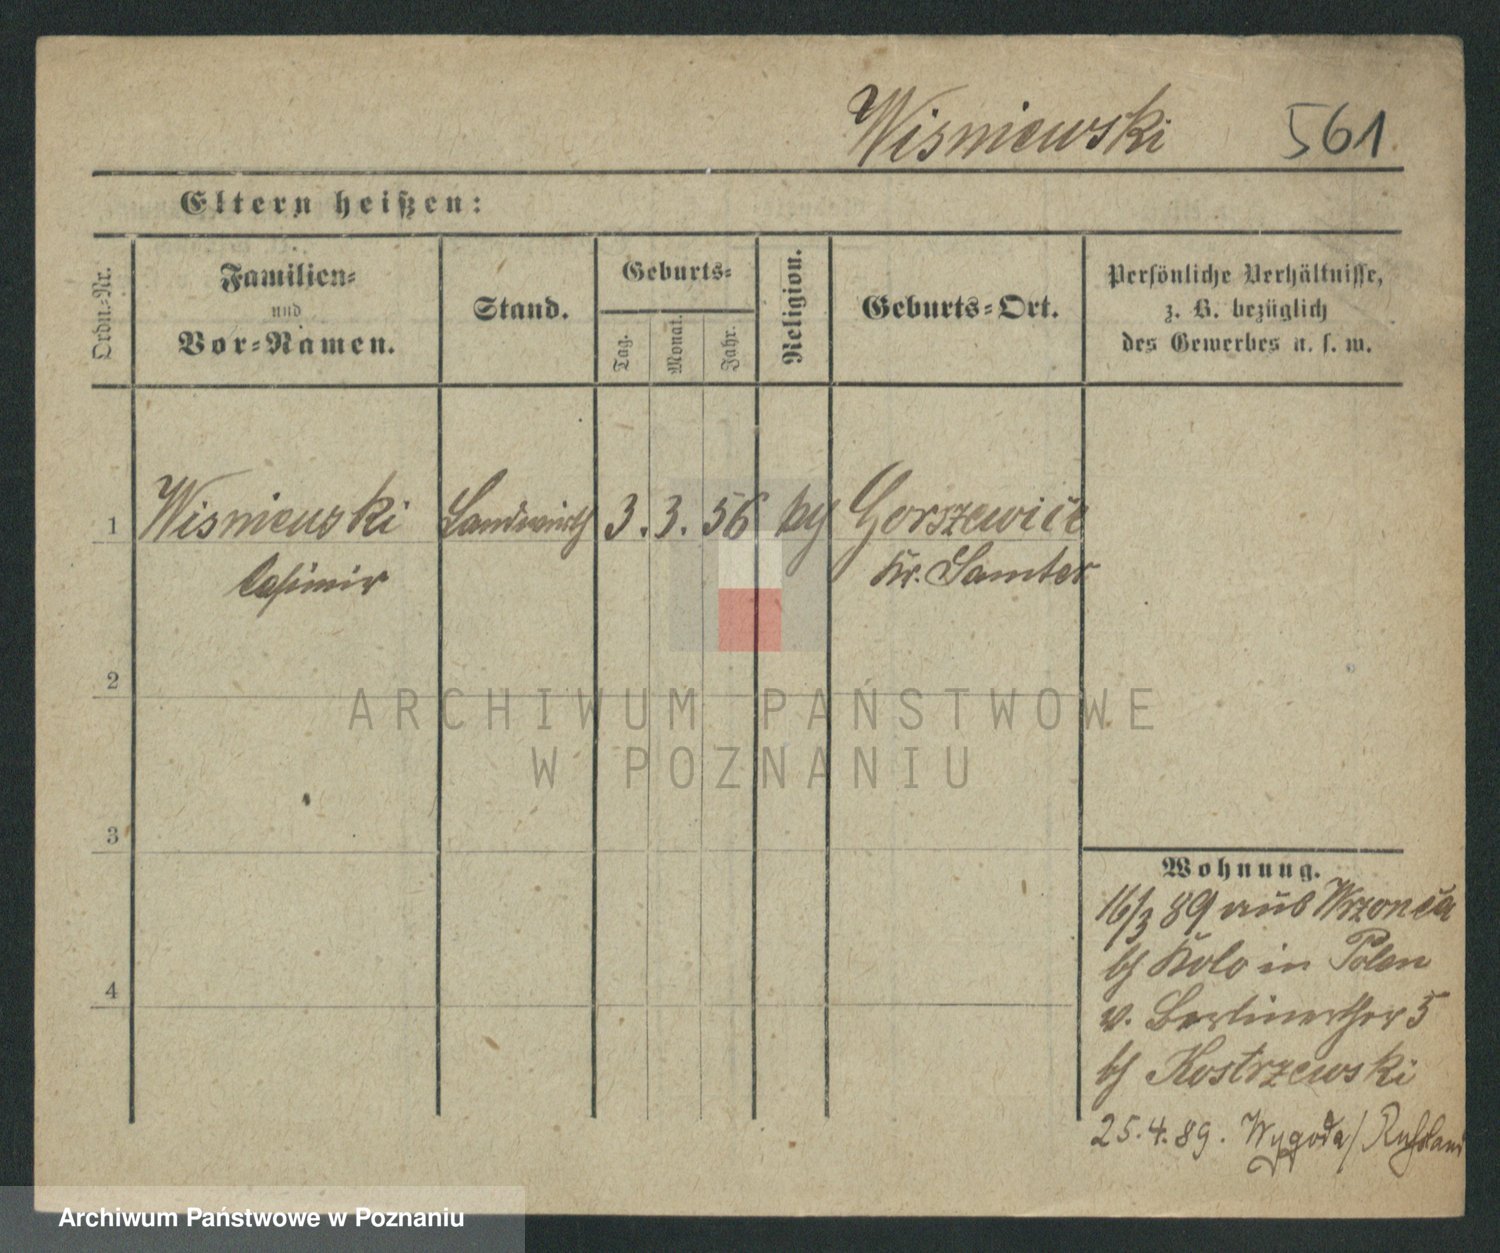 Wisniewski 561
Eltern heißen:
Ordn.-Nr.
Familien-
und
Vor-Namen.
Stand.
Geburts-
Tag.
Monat.
Jahr.
Religion.
Geburts-Ort.
Persönliche Verhältnisse,
z. B. bezüglich
des Gewerbes u. s. w.
1 Wisniewski Landwirth 3. 3. 56 Gorszewice
Casimir Kr. Samter
2
3
4
ARCHIWUM PAŃSTWOWE
W POZNANIU
Wohnung.
16/3 89 aus
Kolo in Polen
v. Berlinerthor 5
Kostrzewski
25.4.89. Wygoda/Rußland
Archiwum Państwowe w Poznaniu